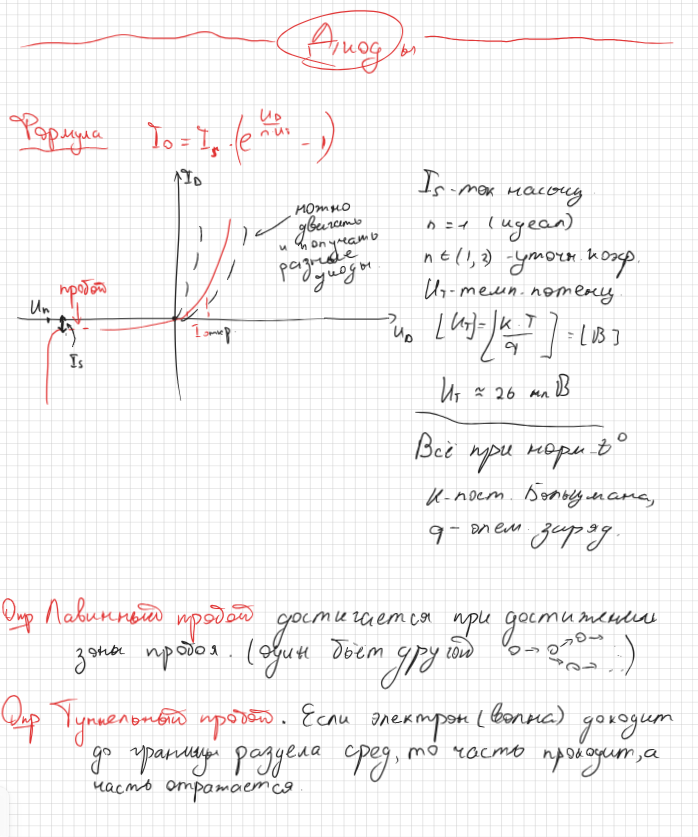 Диоды
Формула I_D = I_s · (e^(U_D / n U_T) - 1)
I_D
можно
двигать
и получать
разные
диоды
пробой
U_п
I_s
I откр
U_D
I_s - ток насыщ
n = 1 (идеал)
n ∈ (1, 2) - уточн. коэф.
U_T - темп. потенц
[U_T] = [k · T / q] = [В]
U_T ≈ 26 мВ
Всё при норм. t°
k - пост. Больцмана,
q - элем. заряд.
Опр Лавинный пробой достигается при достижении
зоны пробоя. (один бьёт другой ...)
Опр Туннельный пробой. Если электрон (волна) доходит
до границы раздела сред, то часть проходит, а
часть отражается.